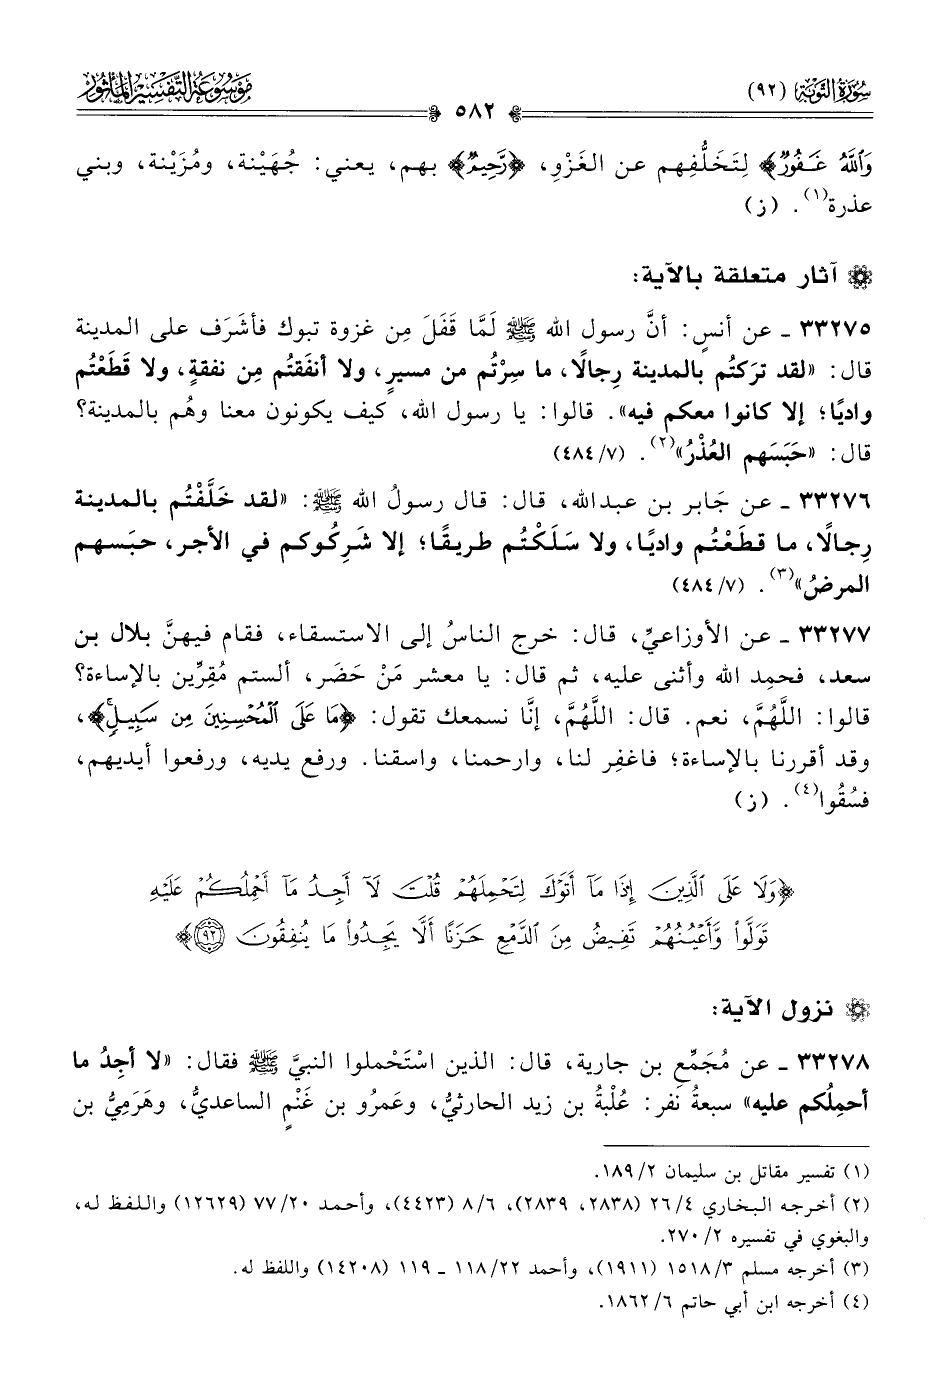 سُورَةُ التَّوْبَةِ (٩٢)
٥٨٢
مَوْسُوعَةُ التَّفْسِيرِ المَأْثُورِ
وَٱللَّهُ غَفُورٌ﴾ لِتَخَلُّفِهم عن الغَزْوِ، ﴿رَّحِيمٌ﴾ بهم، يعني: جُهَيْنة، ومُزَيْنة، وبني
عذرة(١). (ز)
آثار متعلقة بالآية:
٣٣٢٧٥ ـ عن أنسٍ: أنَّ رسول الله ﷺ لَمَّا قَفَلَ مِن غزوة تبوك فأشَرَف على المدينة
قال: «لقد تركتُم بالمدينة رِجالًا، ما سِرْتُم من مسيرٍ، ولا أنفَقتُم مِن نفقةٍ، ولا قَطَعْتُم
واديًا؛ إلا كانوا معكم فيه». قالوا: يا رسول الله، كيف يكونون معنا وهُم بالمدينة؟
قال: «حَبَسَهم العُذْرُ»(٢). (٧/ ٤٨٤)
٣٣٢٧٦ ـ عن جَابر بن عبدالله، قال: قال رسولُ الله ﷺ: «لقد خَلَّفْتُم بالمدينة
رِجالًا، ما قطَعْتُم واديًا، ولا سَلَكْتُم طريقًا؛ إلا شَرِكُوكم في الأجر، حبَسهم
المرضُ»(٣). (٧/ ٤٨٤)
٣٣٢٧٧ ـ عن الأوزاعيِّ، قال: خرج الناسُ إلى الاستسقاء، فقام فيهنَّ بلال بن
سعد، فحمِد الله وأثنى عليه، ثم قال: يا معشر مَنْ حَضَر، ألستم مُقِرِّين بالإساءة؟
قالوا: اللَّهُمَّ، نعم. قال: اللَّهُمَّ، إنَّا نسمعك تقول: ﴿مَا عَلَى ٱلْمُحْسِنِينَ مِن سَبِيلٍ﴾،
وقد أقررنا بالإساءة؛ فاغفِر لنا، وارحمنا، واسقنا. ورفع يديه، ورفعوا أيديهم،
فسُقُوا(٤). (ز)
﴿وَلَا عَلَى ٱلَّذِينَ إِذَا مَآ أَتَوْكَ لِتَحْمِلَهُمْ قُلْتَ لَآ أَجِدُ مَآ أَحْمِلُكُمْ عَلَيْهِ
تَوَلَّوا۟ وَّأَعْيُنُهُمْ تَفِيضُ مِنَ ٱلدَّمْعِ حَزَنًا أَلَّا يَجِدُوا۟ مَا يُنفِقُونَ ٩٢﴾
نزول الآية:
٣٣٢٧٨ ـ عن مُجَمِّعِ بن جارية، قال: الذين اسْتَحْملوا النبيَّ ﷺ فقال: «لا أجِدُ ما
أحمِلُكم عليه» سبعةُ نفر: عُلْبةُ بن زيد الحارثيُّ، وعَمرُو بن غَنْمٍ الساعديُّ، وهَرَمِيُّ بن
(١) تفسير مقاتل بن سليمان ٢/ ١٨٩.
(٢) أخرجه البخاري ٤/ ٢٦ (٢٨٣٨، ٢٨٣٩)، ٦/ ٨ (٤٤٢٣)، وأحمد ٢٠/ ٧٧ (١٢٦٢٩) واللفظ له،
والبغوي في تفسيره ٢/ ٢٧٠.
(٣) أخرجه مسلم ٣/ ١٥١٨ (١٩١١)، وأحمد ٢٢/ ١١٨ ـ ١١٩ (١٤٢٠٨) واللفظ له.
(٤) أخرجه ابن أبي حاتم ٦/ ١٨٦٢.